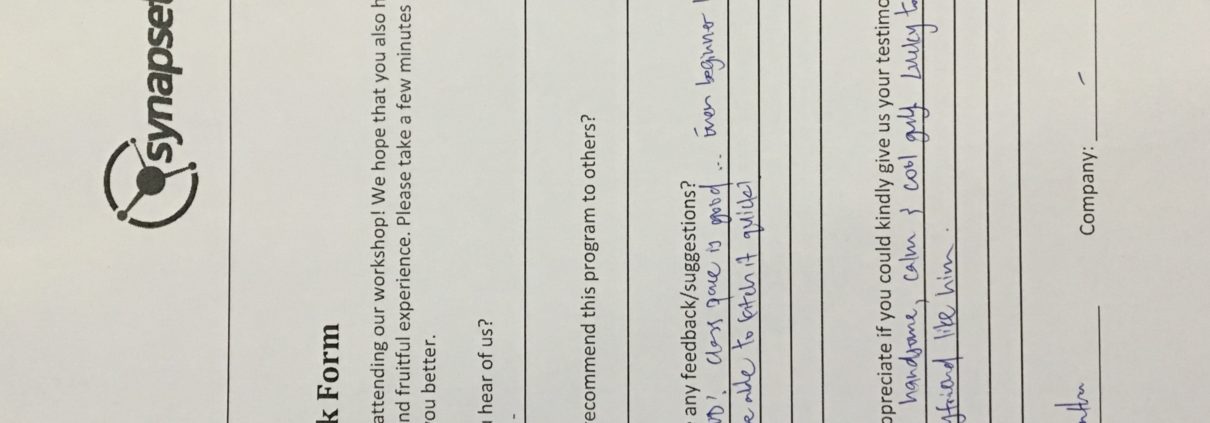 synapse
k Form
attending our workshop! We hope that you also h
nd fruitful experience. Please take a few minutes
ou better.
hear of us?
-
recommend this program to others?
any feedback/suggestions?
class pace is good ... even beginner
able to catch it quick!
ppreciate if you could kindly give us your testimo
handsome, calm & cool guy. Lucky to
yfriend like him.
Company: -